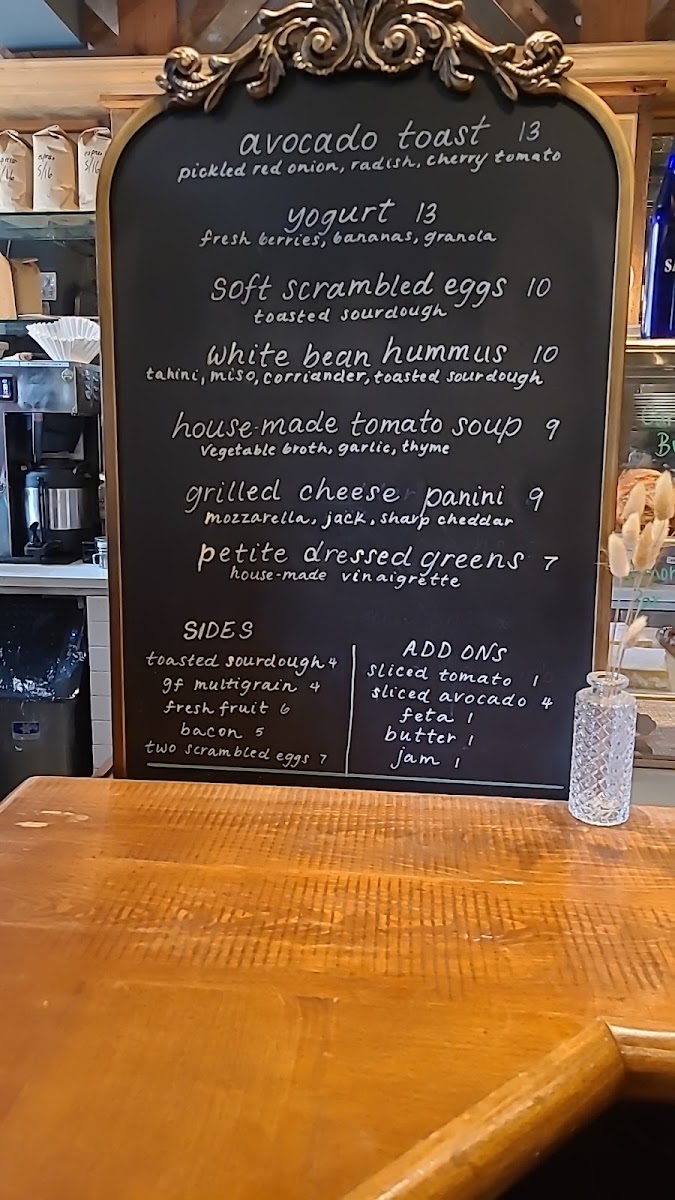 avocado toast 13
pickled red onion, radish, cherry tomato
yogurt 13
fresh berries, bananas, granola
soft scrambled eggs 10
toasted sourdough
white bean hummus 10
tahini, miso, corriander, toasted sourdough
house-made tomato soup 9
Vegetable broth, garlic, thyme
grilled cheese panini 9
mozzarella, jack, sharp cheddar
petite dressed greens 7
house-made vinaigrette
SIDES
toasted sourdough 4
gf multigrain 4
fresh fruit 6
bacon 5
two scrambled eggs 7
ADD ONS
sliced tomato 1
sliced avocado 4
feta 1
butter 1
jam 1
5/16